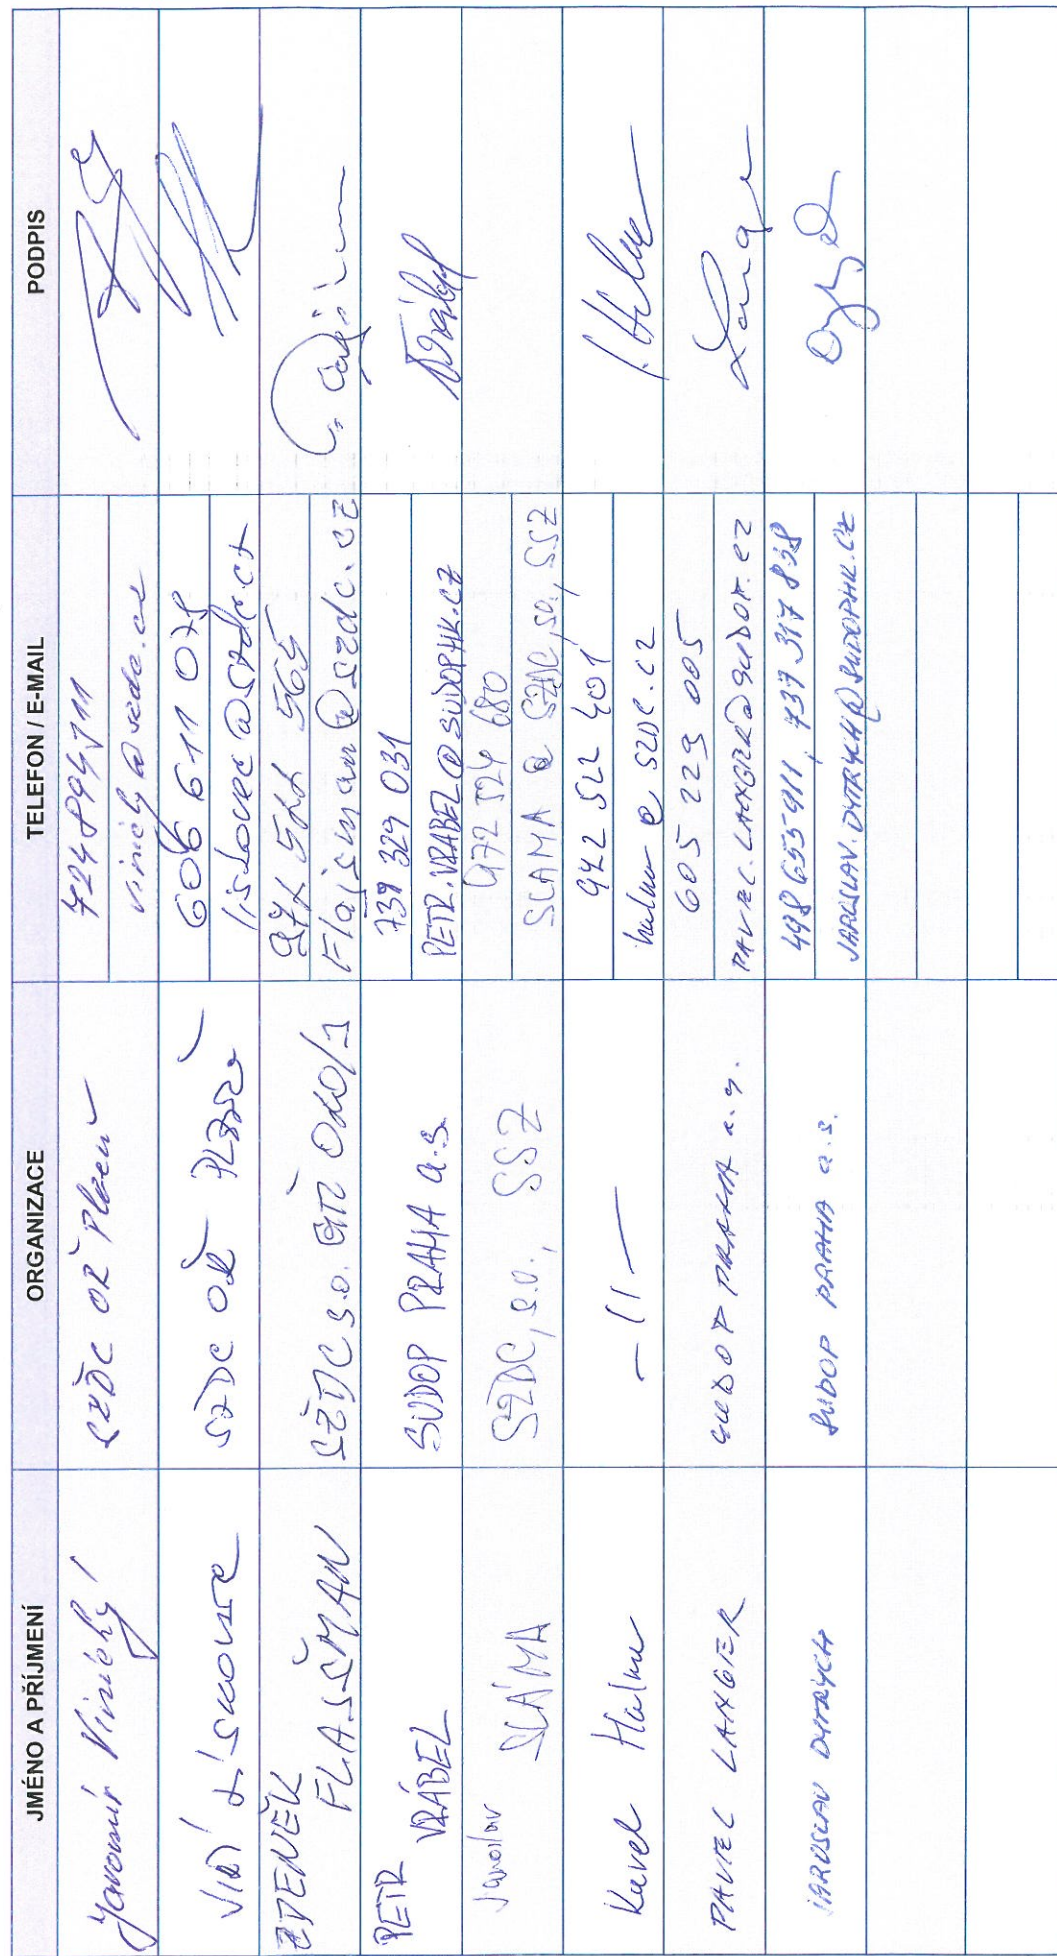 JMÉNO A PŘÍJMENÍ ORGANIZACE TELEFON / E-MAIL PODPIS
Jaromír Vinický SŽDC OŘ Plzeň 724 894 711
SŽDC OŘ PLZEŇ 606 611 078
liskovec@szdc.cz
ZDENĚK
FLAJŠMAN SŽDC s.o. GŘ 972 522 565
Flajsman@szdc.cz
PETR
VRÁBEL SUDOP PRAHA a.s. 739 329 031
PETR.VRABEL@SUDOPHK.CZ
Vrábel
Jaroslav
SLÁMA SŽDC, s.o., SSZ 972 524 680
SLAMA @ SZDC, so., SSZ
Karel — 11 — 972 522 401
@ SZDC.CZ
PAVEL LANGER SUDOP PRAHA a.s. 605 229 005
PAVEL.LANGER@SUDOP.CZ
Langer
JAROSLAV DYTRYCH SUDOP PRAHA a.s. 498 655 911, 737 317 838
JAROSLAV.DYTRYCH@SUDOPHK.CZ